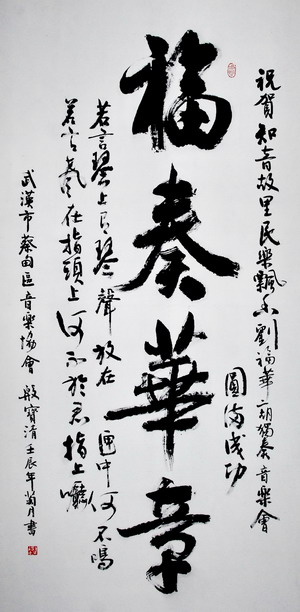 祝賀知音故里民樂飄香劉福華二胡獨奏音樂會
圓滿成功
福奏華章
若言琴上有琴聲放在匣中何不鳴
若言聲在指頭上何不於君指上聽
武漢市蔡甸區音樂協會 殷寶清壬辰年菊月書